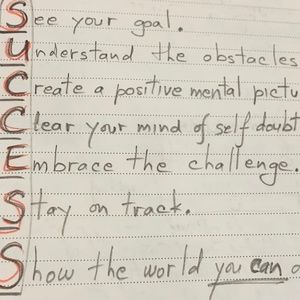 See your goal.
Understand the obstacles
Create a positive mental pictu
Clear your mind of self doubt
Embrace the challenge.
Stay on track.
Show the world you can